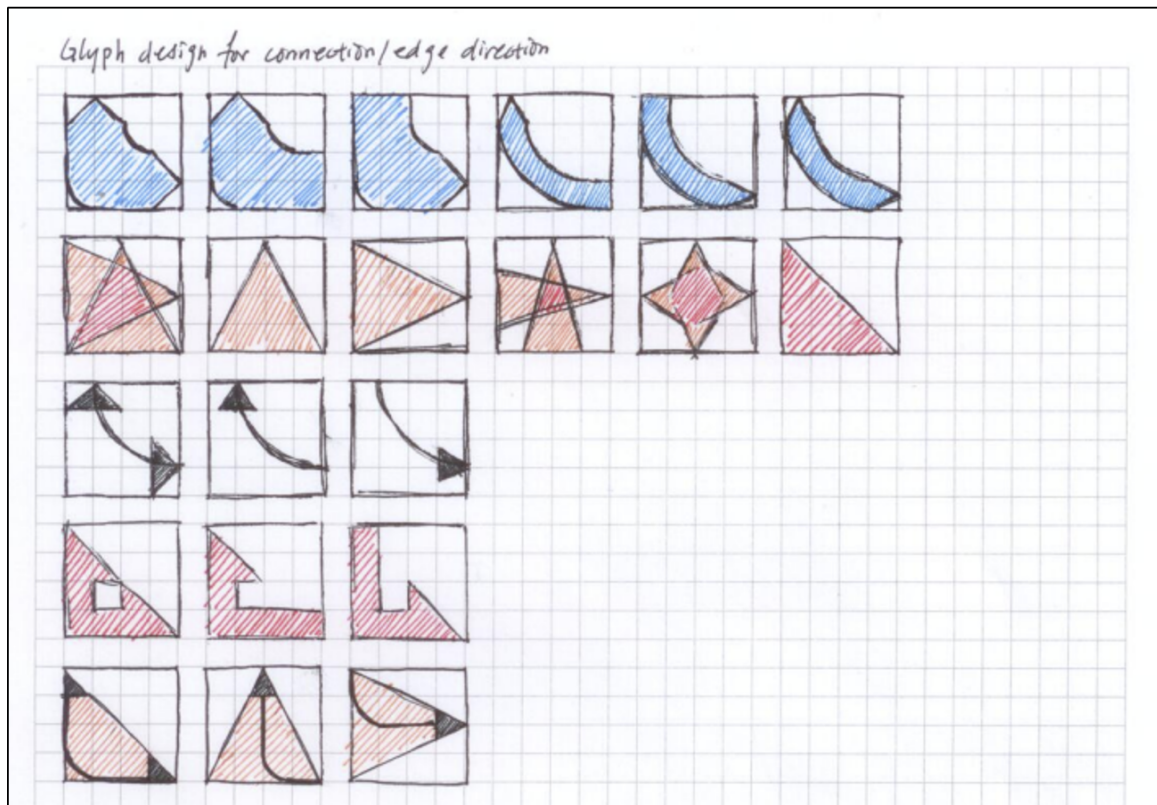 Glyph design for connection/edge direction